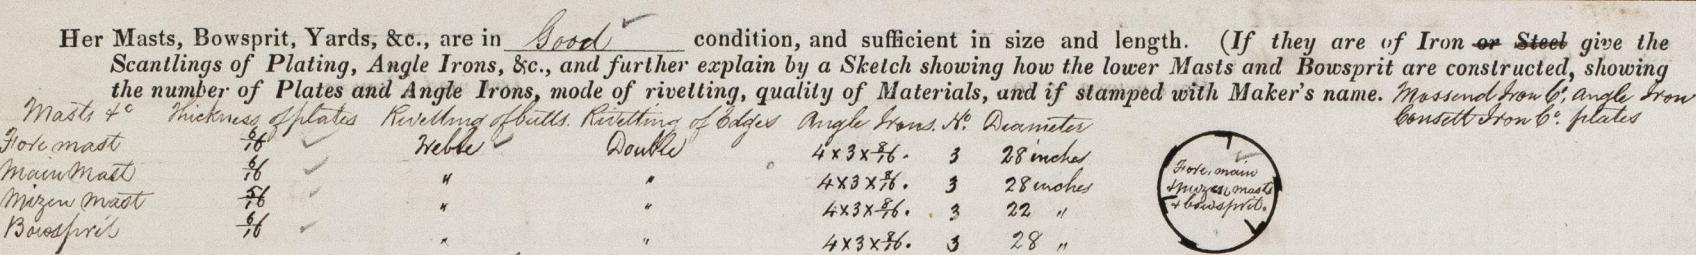 Her Masts, Bowsprit, Yards, &c., are in Good condition, and sufficient in size and length. (If they are of Iron or Steel give the
Scantlings of Plating, Angle Irons, &c., and further explain by a Sketch showing how the lower Masts and Bowsprit are constructed, showing
the number of Plates and Angle Irons, mode of rivetting, quality of Materials, and if stamped with Maker's name. Mossend Iron Co., Angle Iron
Consett Iron Co. plates
Masts &c Thickness of plates Rivetting of butts. Rivetting of Edges Angle Irons. No. Diameter
Fore mast 6/16 Treble Double 4 x 3 x 8/16. 3 28 inches
Main Mast 6/16 " " 4 x 3 x 8/16. 3 28 inches
Mizen Mast 5/16 " " 4 x 3 x 8/16. 3 22 "
Bowsprit 6/16 " " 4 x 3 x 8/16. 3 28 "
Fore, main
& mizen masts
& bowsprit.